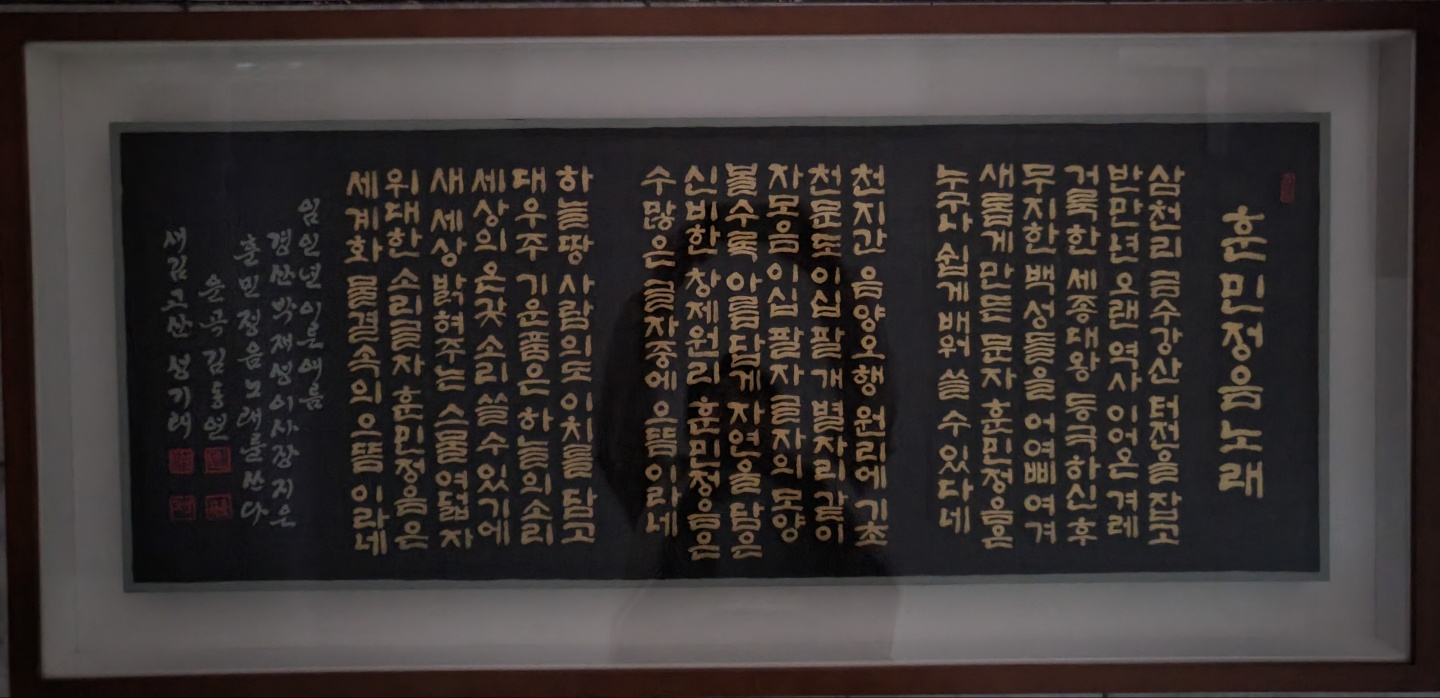 훈민정음노래
삼천리 금수강산 터전을 잡고
반만년 오랜 역사 이어온 겨레
거룩한 세종대왕 등극하신 후
무지한 백성들을 어여삐 여겨
새롭게 만든 문자 훈민정음은
누구나 쉽게 배워 쓸 수 있다네
천지간 음양오행 원리에 기초
천문도 이십 팔개 별자리 같이
자모음 이십 팔자 글자의 모양
볼수록 아름답게 자연을 담은
신비한 창제원리 훈민정음은
수많은 글자중에 으뜸이라네
하늘땅 사람의도 이치를 담고
대우주 기운품은 하늘의소리
세상의 온갖 소리 쓸 수 있기에
새 세상 밝혀주는 스물여덟자
위대한 소리글자 훈민정음은
세계화 물결속의 으뜸이라네
임인년 이른여름
경산 박재성 이사장 지은
훈민정음노래를 쓰다
운곡 김동연
새김 고산 기래